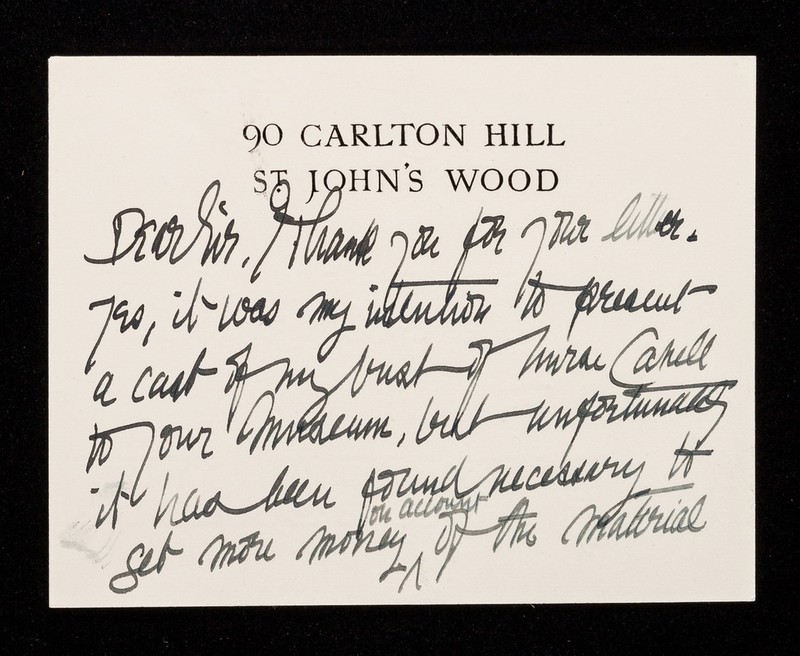 90 CARLTON HILL
ST JOHN'S WOOD
Dear Sir, I thank you for your letter.
Yes, it was my intention to present
a cast of my bust of Nurse Cavell
to your Museum, but unfortunately
it has been found necessary to
on account
get more money of the material